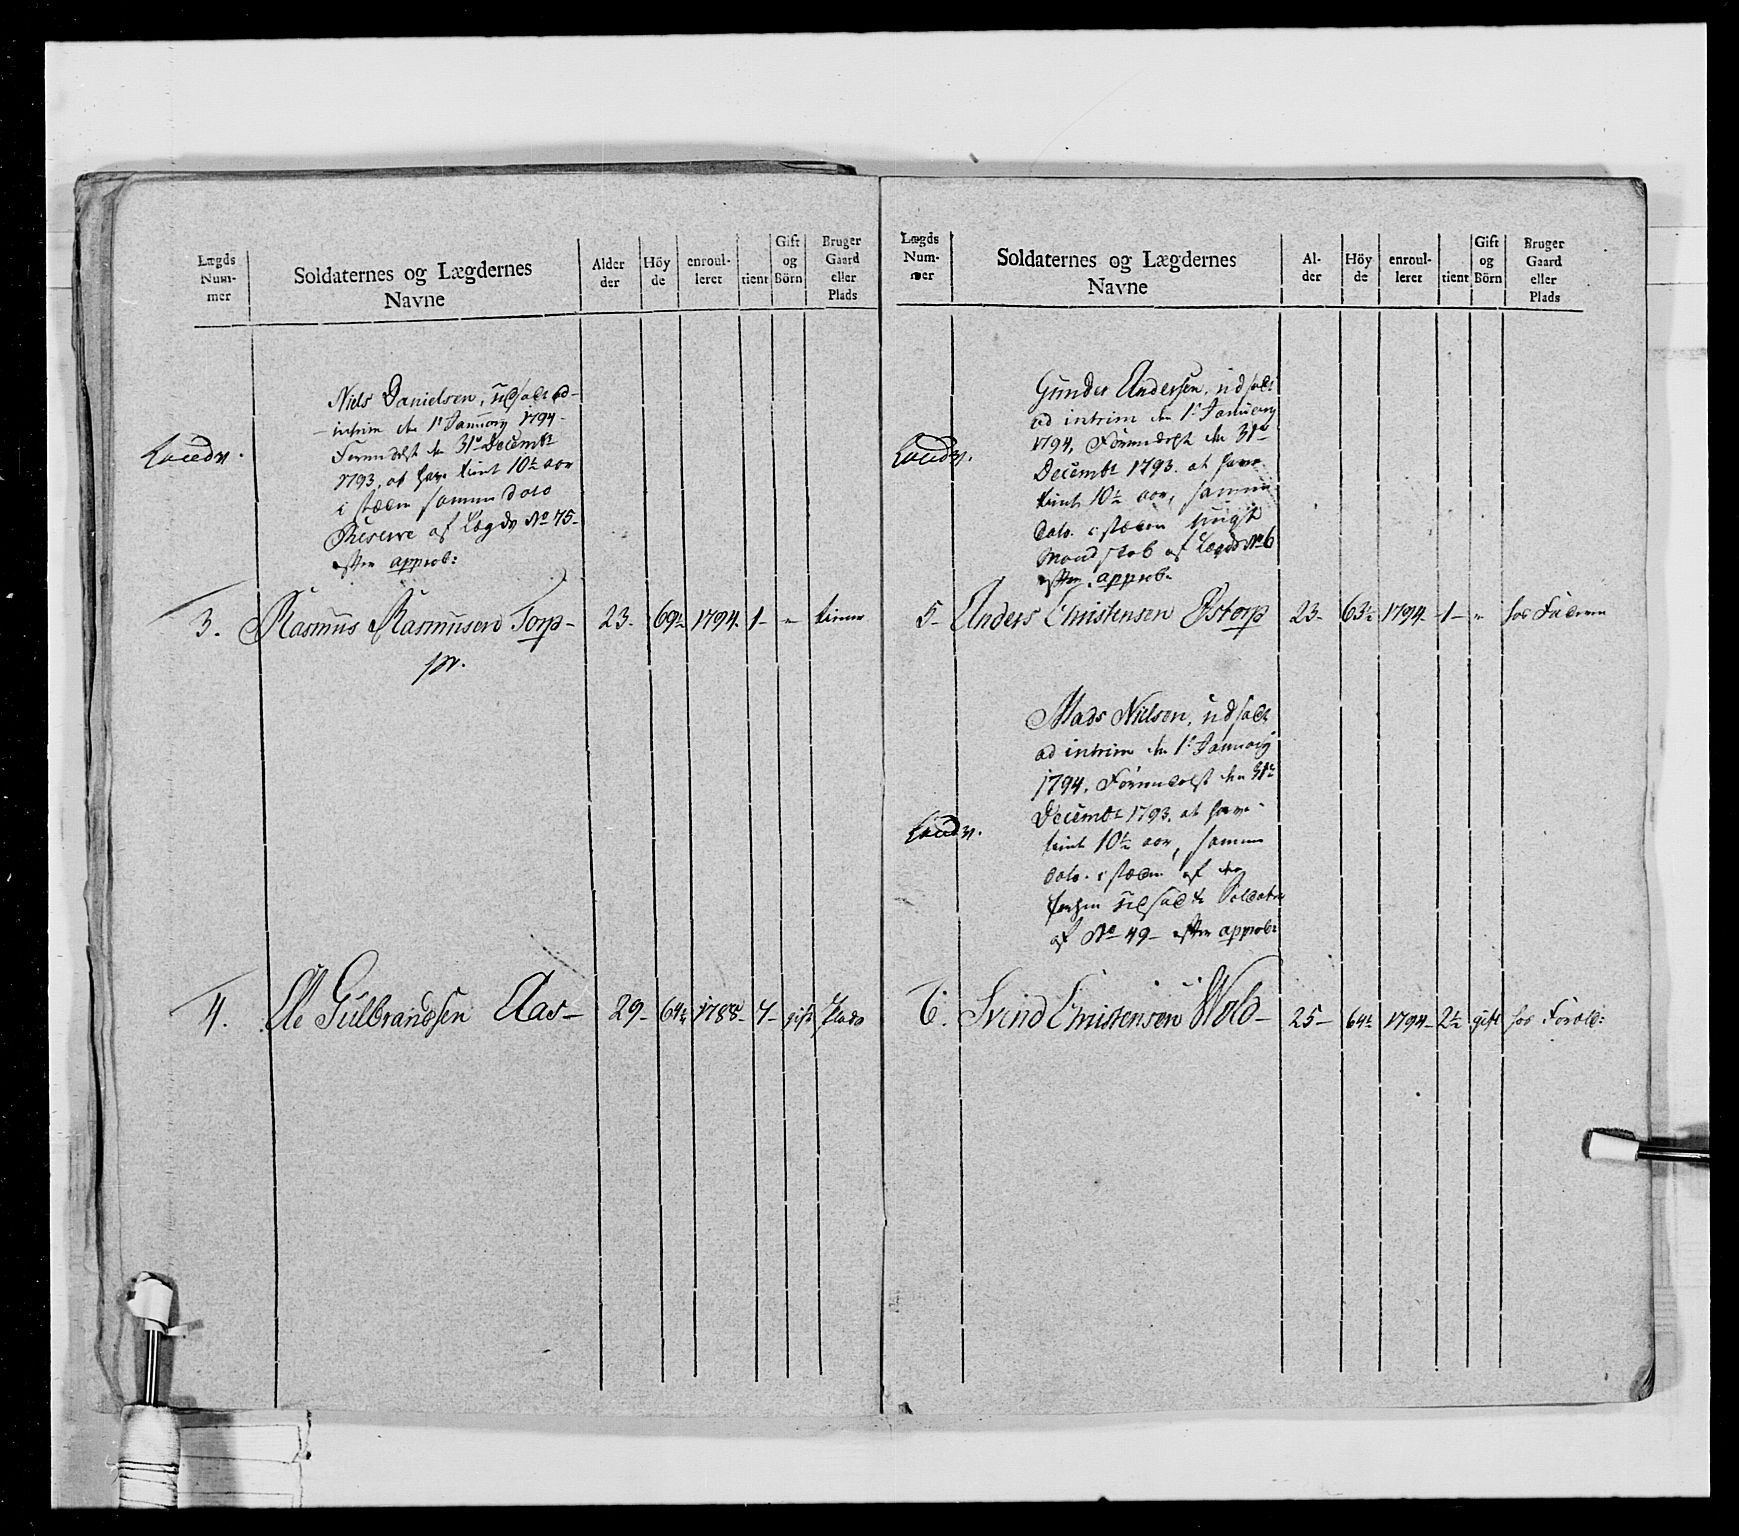 Lægds
Num-
mer
Soldaternes og Lægdernes
Navne
Alder
der
Höy
de
enroul-
leret
tient
Gift
og
Börn
Bruger
Gaard
eller
Plads
Niels Danielsen, udsadt ad
intrim den 1e Januarij 1794
Forundelst den 31te Decembr
1793, at have tient 10½ aar
i stæden samme dato
Reserve af Lægds No 75
efter approb:
Landv.
3. Rasmus Rasmusen Torp 23 69½ 1794 1 " tiener
pr.
4. Ole Gulbrandsen Aas 29 64½ 1788 7 gift Plads
Lægds
Num-
mer
Soldaternes og Lægdernes
Navne
Al-
der
Höy
de
enroul-
leret
tient
Gift
og
Börn
Bruger
Gaard
eller
Plads
Gunder Andersen, udsadt
ad intrim den 1e Januarij
1794, Forundelst den 31te
Decembr 1793. at have
tient 10½ aar, samme
dato. i stæden
Mandskab af Lægds No 6
efter approb.
Landv.
5 Anders Christensen Østorp 23 63½ 1794 1 " hos Faderen
Mads Nielsen, udsadt
ad intrim den 1e Januarij
1794. Forundelst den 31te
Decembr 1793. at have
tient 10½ aar, samme
dato. i stæden af den
forhen udsadte Soldat
af No 49 efter approb:
Landv.
6. Svend Christensen Wold 25 64½ 1794 2½ gift hos Foræld: